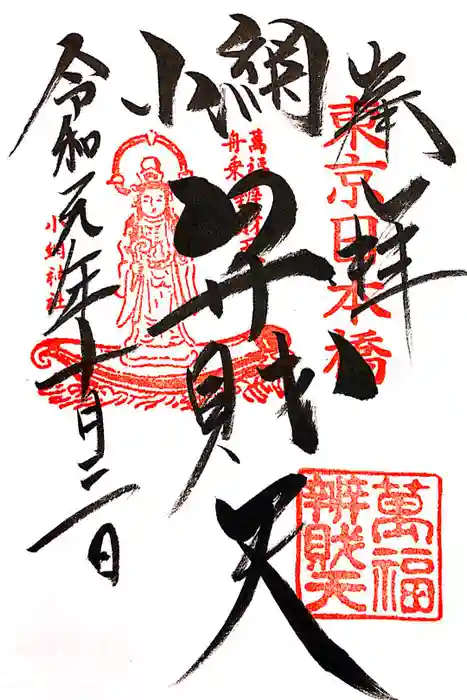 奉拝
東京日本橋
小網
弁財天
萬福辨財天
舟乗
小網神社
令和元年十月二日
萬福
辨財天